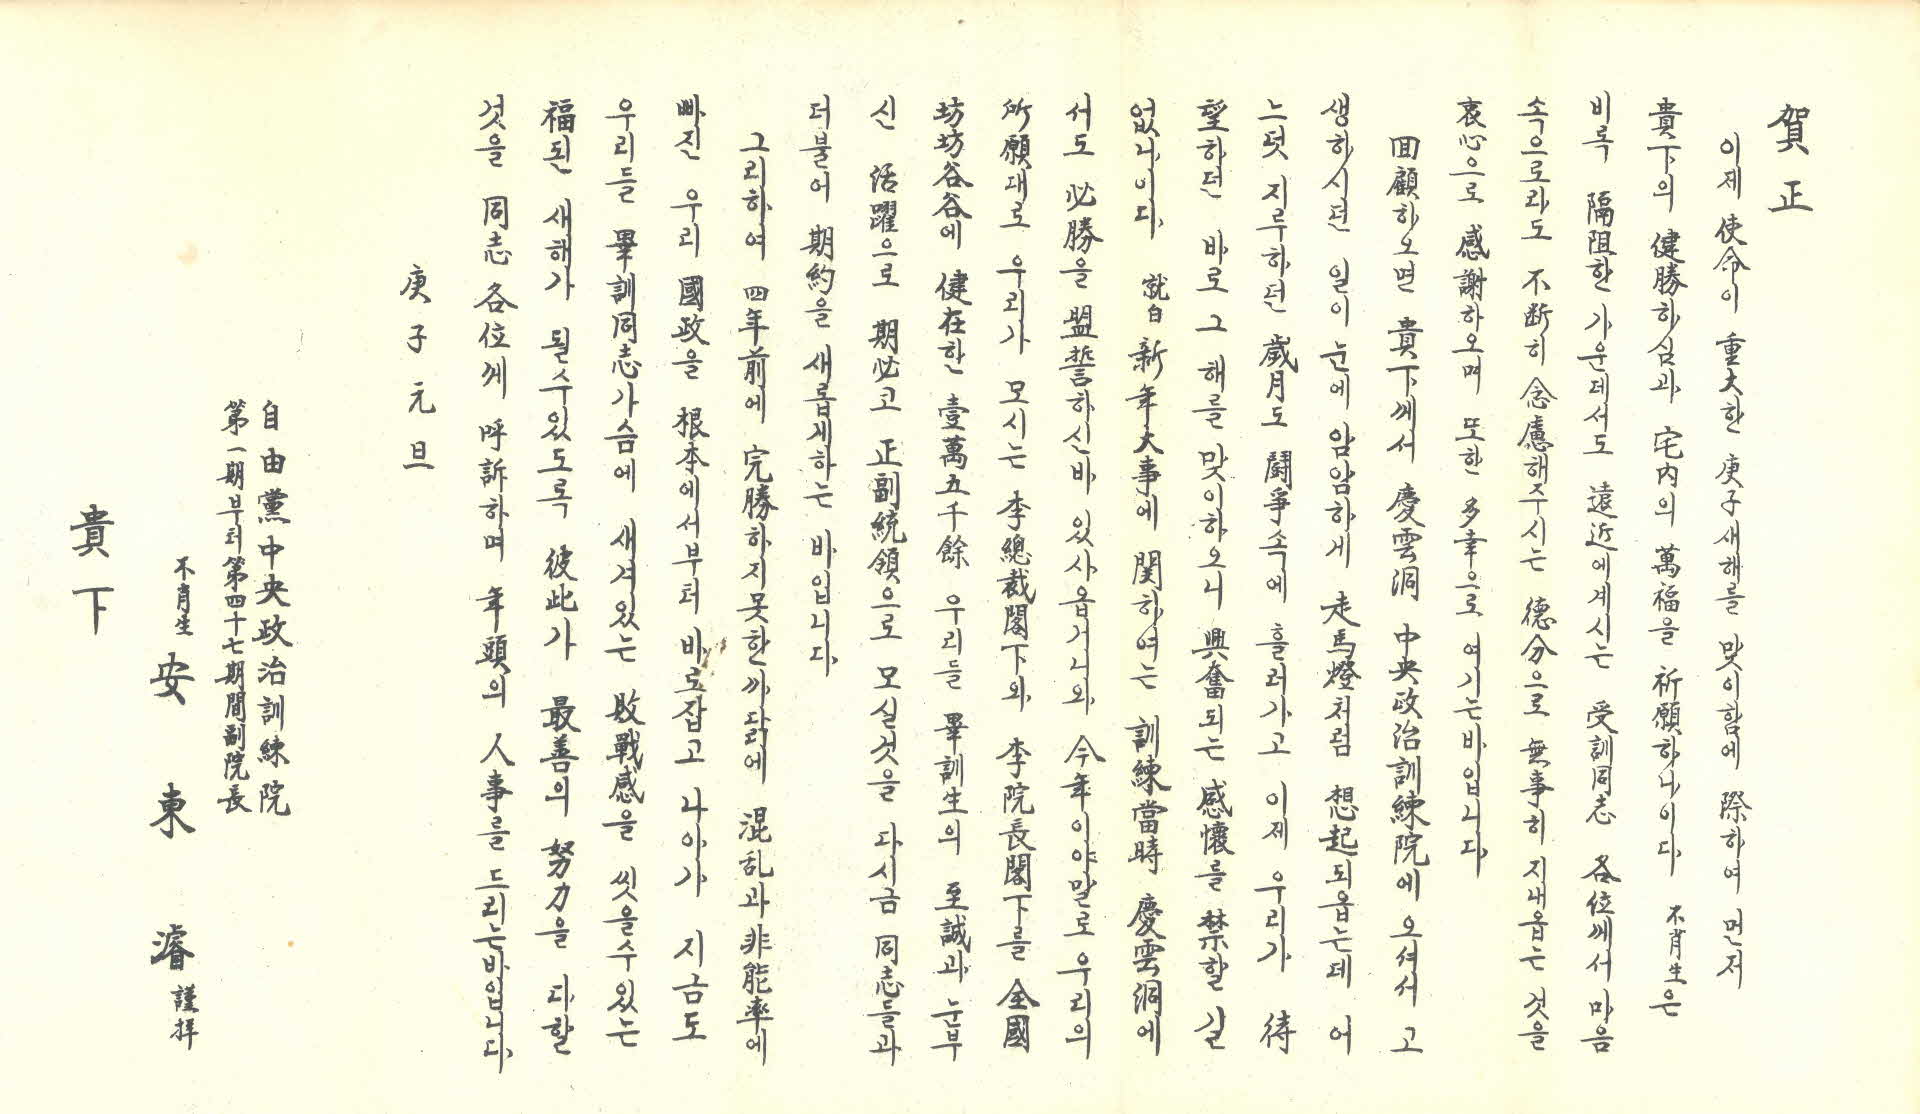 賀正
이제 使命이 重大한 庚子새해를 맞이함에 際하여 먼저
貴下의 健勝하심과 宅内의 萬福을 祈願하나이다 不肖生은
비록 隔阻한 가운데서도 遠近에계시는 受訓同志 各位께서 마음
속으로라도 不断히 念慮해주시는 德分으로 無事히 지내옵는 것을
衷心으로 感謝하오며 또한 多幸으로 여기는바입니다
回顧하오면 貴下께서 慶雲洞 中央政治訓練院에 오셔서 고
생하시던 일이 눈에 암암하게 走馬燈처럼 想起되옵는데 어
느덧 지루하던 歲月도 鬪爭속에 흘러가고 이제 우리가 待
望하던 바로 그 해를 맞이하오니 興奮되는 感懷를 禁할 길
없나이다 就白 新年大事에 関하여는 訓練當時 慶雲洞에
서도 必勝을 盟誓하신바 있사옵거니와 今年이야말로 우리의
所願대로 우리가 모시는 李總裁閣下와 李院長閣下를 全國
坊坊谷谷에 健在한 壹萬五千餘 우리들 畢訓生의 至誠과 눈부
신 活躍으로 期必코 正副統領으로 모실것을 다시금 同志들과
더불어 期約을 새롭게하는 바입니다
그리하여 四年前에 完勝하지못한까닭에 混乱과非能率에
빠진 우리 國政을 根本에서부터 바로잡고 나아가 지금도
우리들 畢訓同志가슴에 새겨있는 敗戰感을 씻을수있는
福된 새해가 될수있도록 彼此가 最善의 努力을 다할
것을 同志各位께 呼訴하며 年頭의 人事를 드리는바입니다
庚子元旦
自由黨中央政治訓練院
第一期부터第四十七期間副院長
不肖生 安東濬 謹拜
貴下